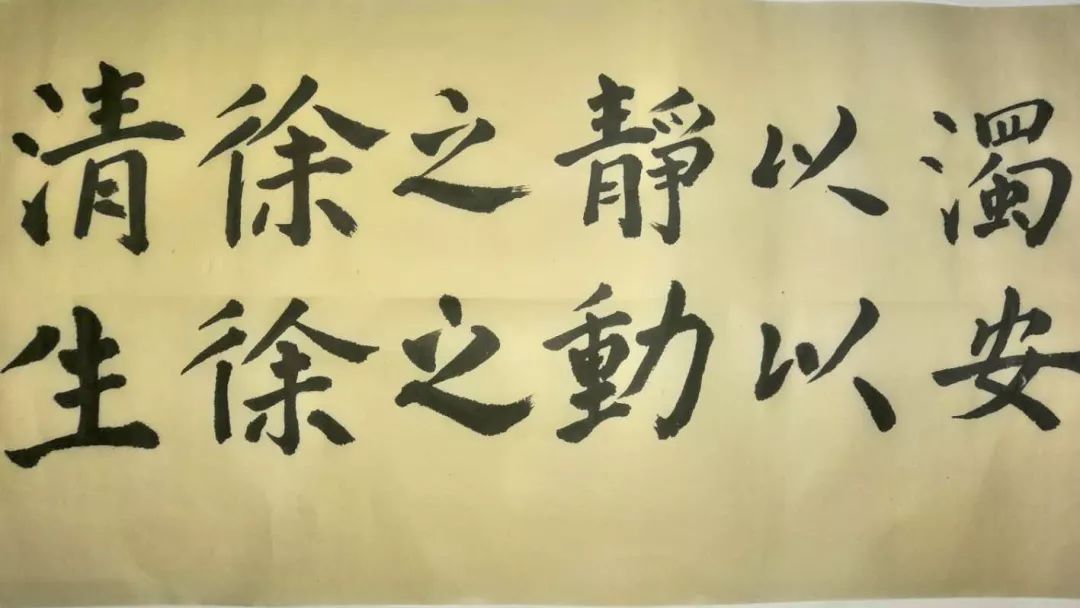 濁以靜之徐清
安以動之徐生